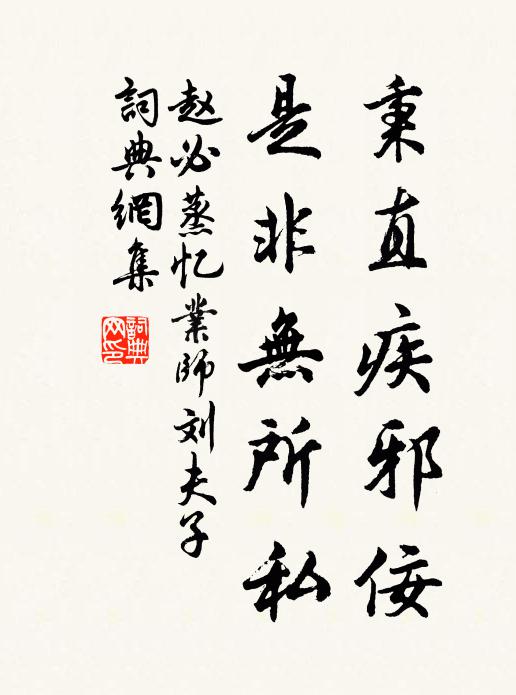 秉直疾邪佞
是非無所私
赵必蒸忆業師刘夫子
詞典網集
詞典网印